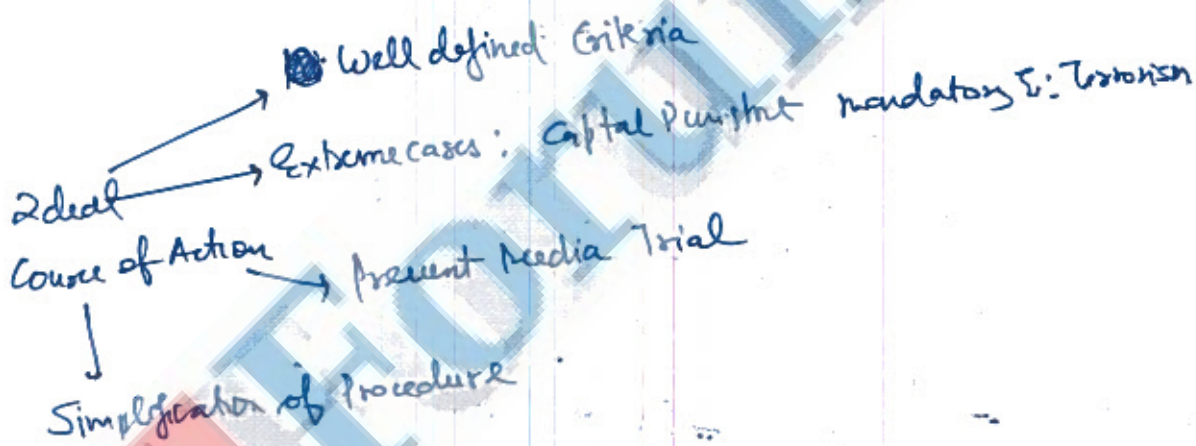 Well defined Criteria
Extreme cases: Capital Punishment mandatory E: Terrorism
Ideal
Course of Action
Prevent Media Trial
Simplification of Procedure
Forum